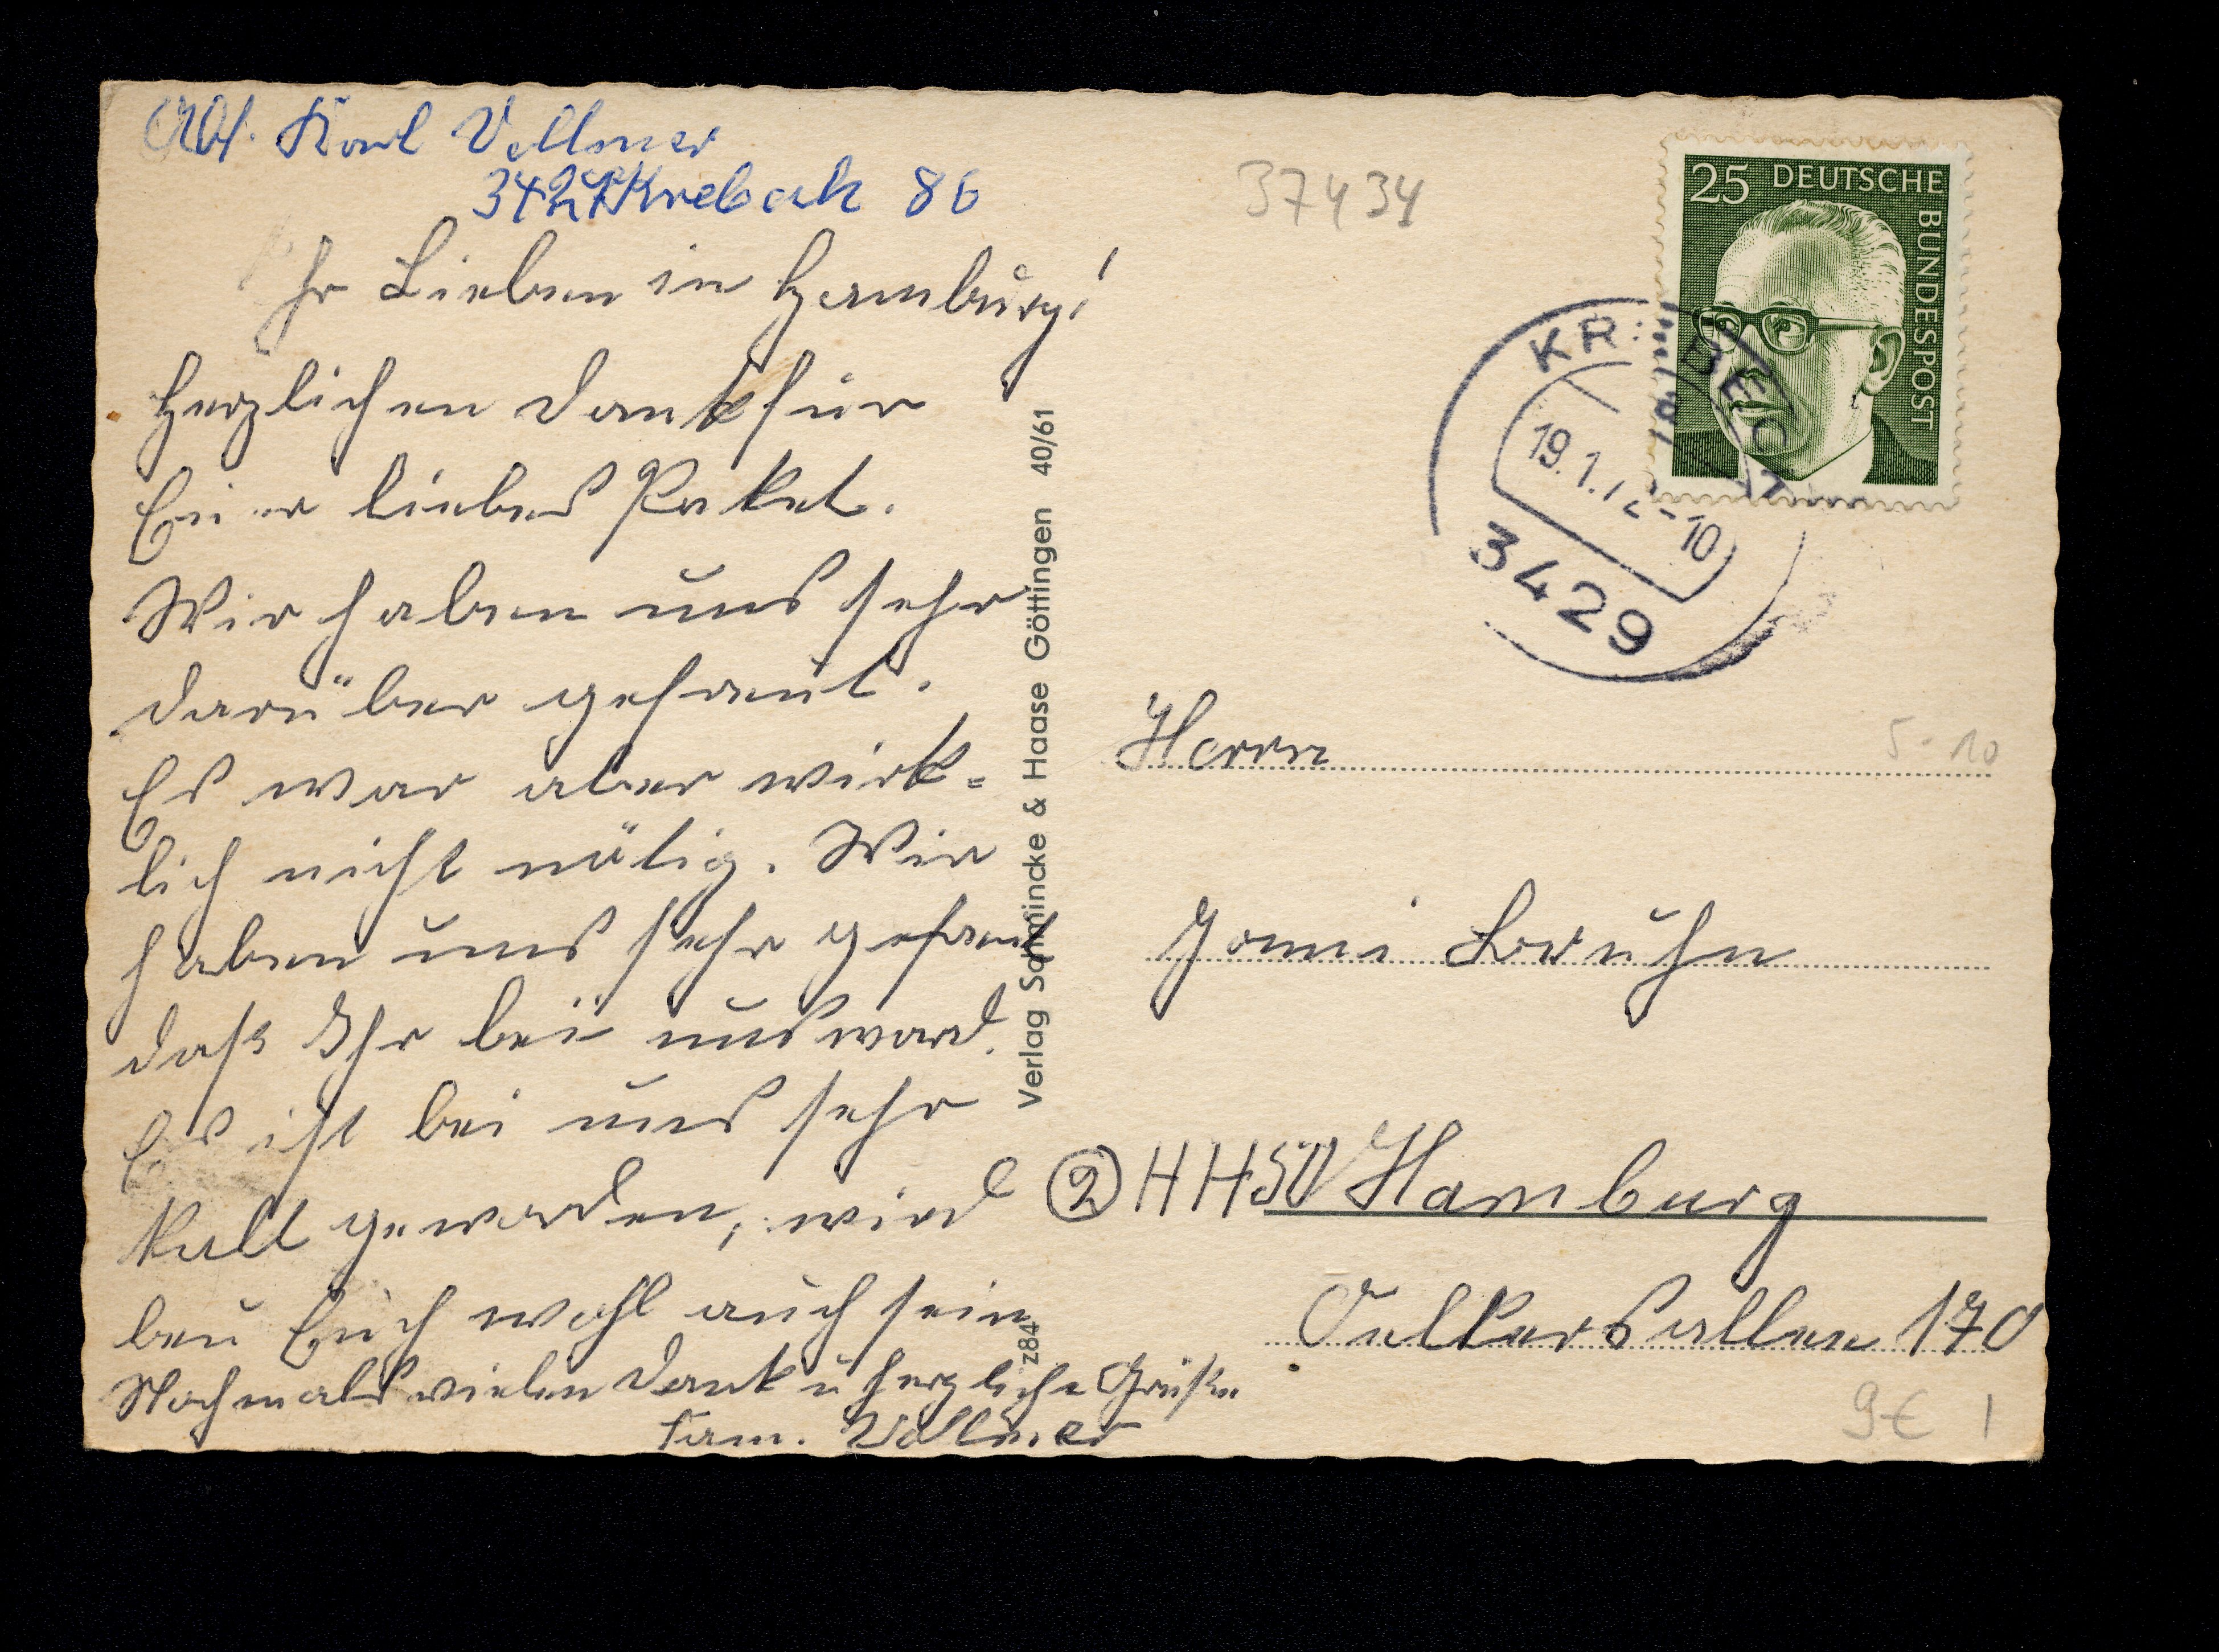 Abs. Karl Vollmer
3429 Krebeck 86
37434
Ihr Lieben in Hamburg!
Herzlichen Dank für
Euer liebes Paket.
Wir haben uns sehr
darüber gefreut.
Es war aber wirk=
lich nicht nötig. Wir
haben uns sehr gefreut
daß Ihr bei uns ward.
Es ist bei uns sehr
kalt geworden, wird
bei Euch wohl auch sein
Nochmals vielen Dank u herzliche Grüße
Fam. Vollmer
Verlag Schmincke & Haase Göttingen 40/61
z84
25 DEUTSCHE BUNDESPOST
KREBECK
19.1.72-10
3429
Herrn
5-10
Jonni Bruhn
2 HH50 Hamburg
170
9€ 1